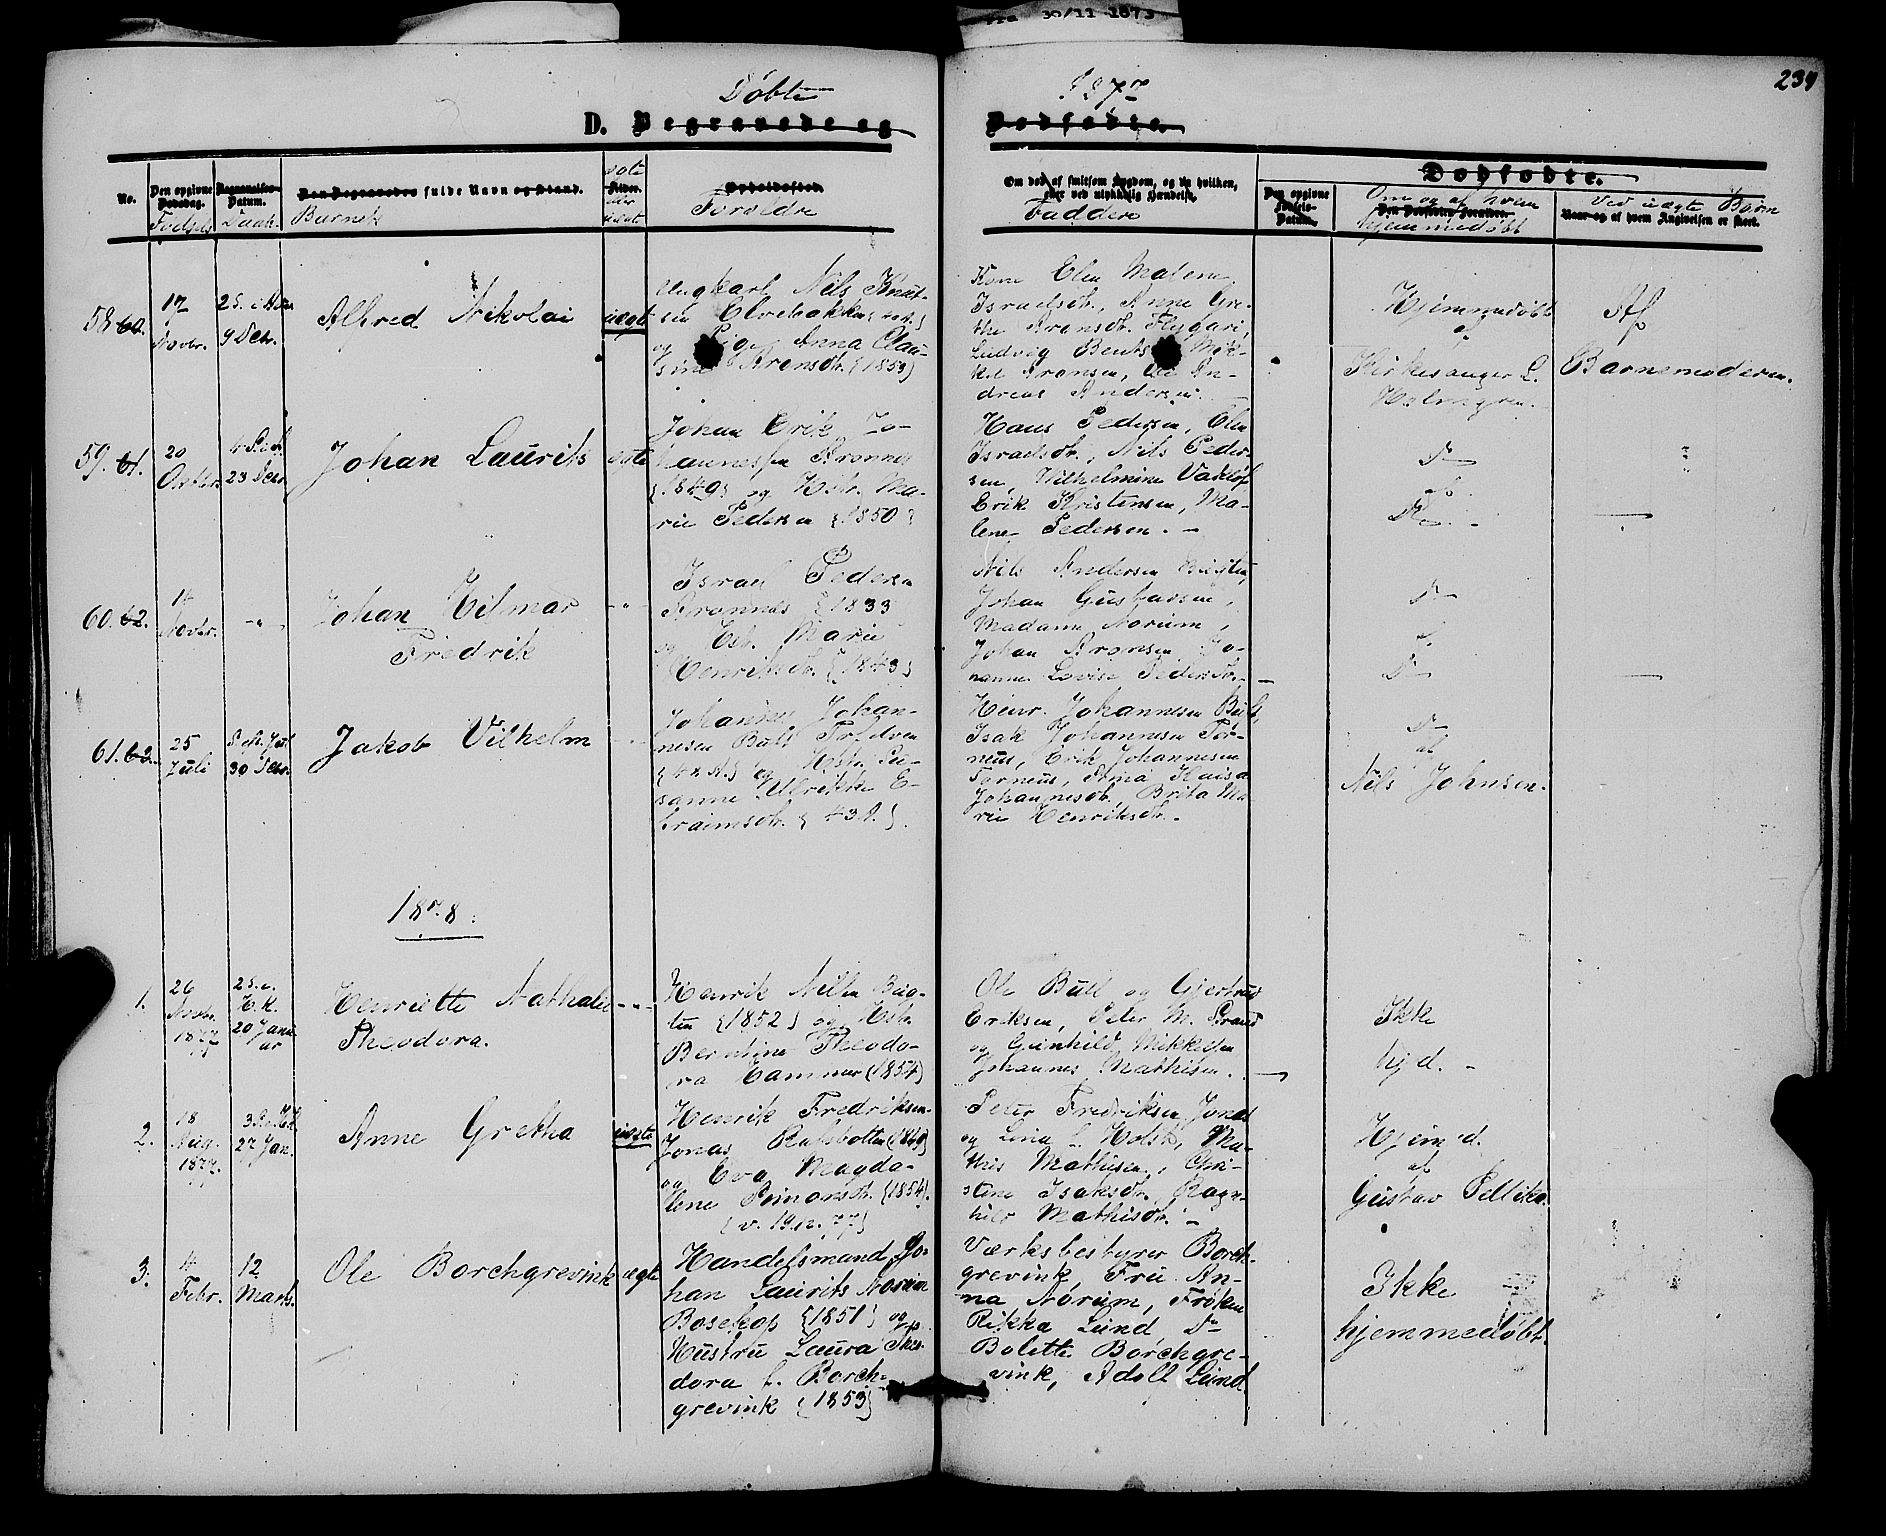 fra 30/11 1873
Døbte
1877
234
D. Begravede og
Dødfødte.
No.
Den opgivne Dødsdag.
Fødsels
Begravelses- Datum.
Daab.
Den Begravedes fulde Navn og Stand.
Barnets
ægte
Alder.
eller
uægt
Opholdssted.
Forældre
Om død af smitsom Sygdom, og da hvilken,
eller ved ulykkelig Hændelse.
Faddere
Dødfødte.
Den opgivne Fødsels- Datum.
Om og af hvem
Den Dødfødtes Forældre.
hjemmedøbt
Ved uægte Børn
Naar og af hvem Angivelsen er skeet.
58 60.
17
Novbr.
9 Decbr.
Alfred Nikolai
uægt
Ungkarl Nils Knut-
sen Elvebakken
og Pige Anna Clau-
sine Aronsdtr. {1853}
Kone Elen Malene
Israelsdtr., Anne Gre-
the Aronsdtr. Flygari,
Ludvig Bents Mik-
kel Aronsen, An-
dreas Andersen.
Hjemmedøbt
af
Kirkesanger L.
Holmgren.
Af
Barnemoderen.
59. 61.
20
Octbr.
23 Decbr.
Johan Laurits
ægte
Johan Erik Jo-
hannessen Kronnes
{1849} og Hstr. Ma-
rie Pedersen {1850}
Hans Pedersen, Elen
Israelsdtr., Nils Peder-
sen, Wilhelmine
Erik Kristensen, Ma-
lene Pedersen. -
Do
af
Do. -
60. 62.
14
Novbr.
- " -
Johan Hilmar
Fredrik
- " -
Israel Pedersen
Kronnes {1833
og Hstr. Marie
Henriksdtr. {1843}
Nils Andersen
Johan Gustavsen,
Madame Norum,
Johan Aronsen, Jo-
hanne Lovise Pedersdtr. -
Do
af
Do
61. 63.
25
Juli
30 Decbr.
Jakob Vilhelm
Johannes Johan-
nesen Bält
{42 A.} og Hstr. Su-
sanne Ulrikke E-
fraimsdtr. {43 A.}.
Henr. Johannesen Bält,
Isak Johannesen Tor-
neus, Erik Johannesen
Torneus, Anna Kaisa
Johannesdtr., Brita Ma
rie Henriksdtr.
Do
af
Nils Johnsen.
1878.
1.
26
Novbr.
1877
H. K.
20 Janu
ar
Henriette Nathalie
Theodora.
- " -
Henrik Nilsen
{1852} og Hstr.
Berntine Theodo-
ra Hammer (1854)
Ole Bull og Gjertrud
Eriksen, Peter M. Strand
og Gunhild Mikkelsen
Johannes Mathisen.
Ikke
hj d. -
2.
18
Aug.
1877
27 Jan.
Anne Gretha
uægte
Henrik Fredriksen
Jonas Rafsbotten
og Eva Magda-
lene Simonsdtr. {1854}.
{v. 19/12. 77}
Peter Fredriksen Jonas
og Lina f. Holst, Ma-
this Mathisen, Chri-
stine Isaksdtr., Ragn-
hild Mathisdtr. -
Hjem d.
af
Gustav Pellika.
3.
4
Febr.
12
Marts.
Ole Borchgrevink
ægte
Handelsmand Jo-
han Laurits Norum
Bosekop {1851} og
Hustru Laura Theo-
dora f. Borch-
grevink {1853}
Værksbestyrer Borch-
grevink, Fru An-
na Norum, Frøken
Rikka Lund Do
Bolette Borchgre-
vink, Adolf Lund
Ikke
hjemmedøbt.